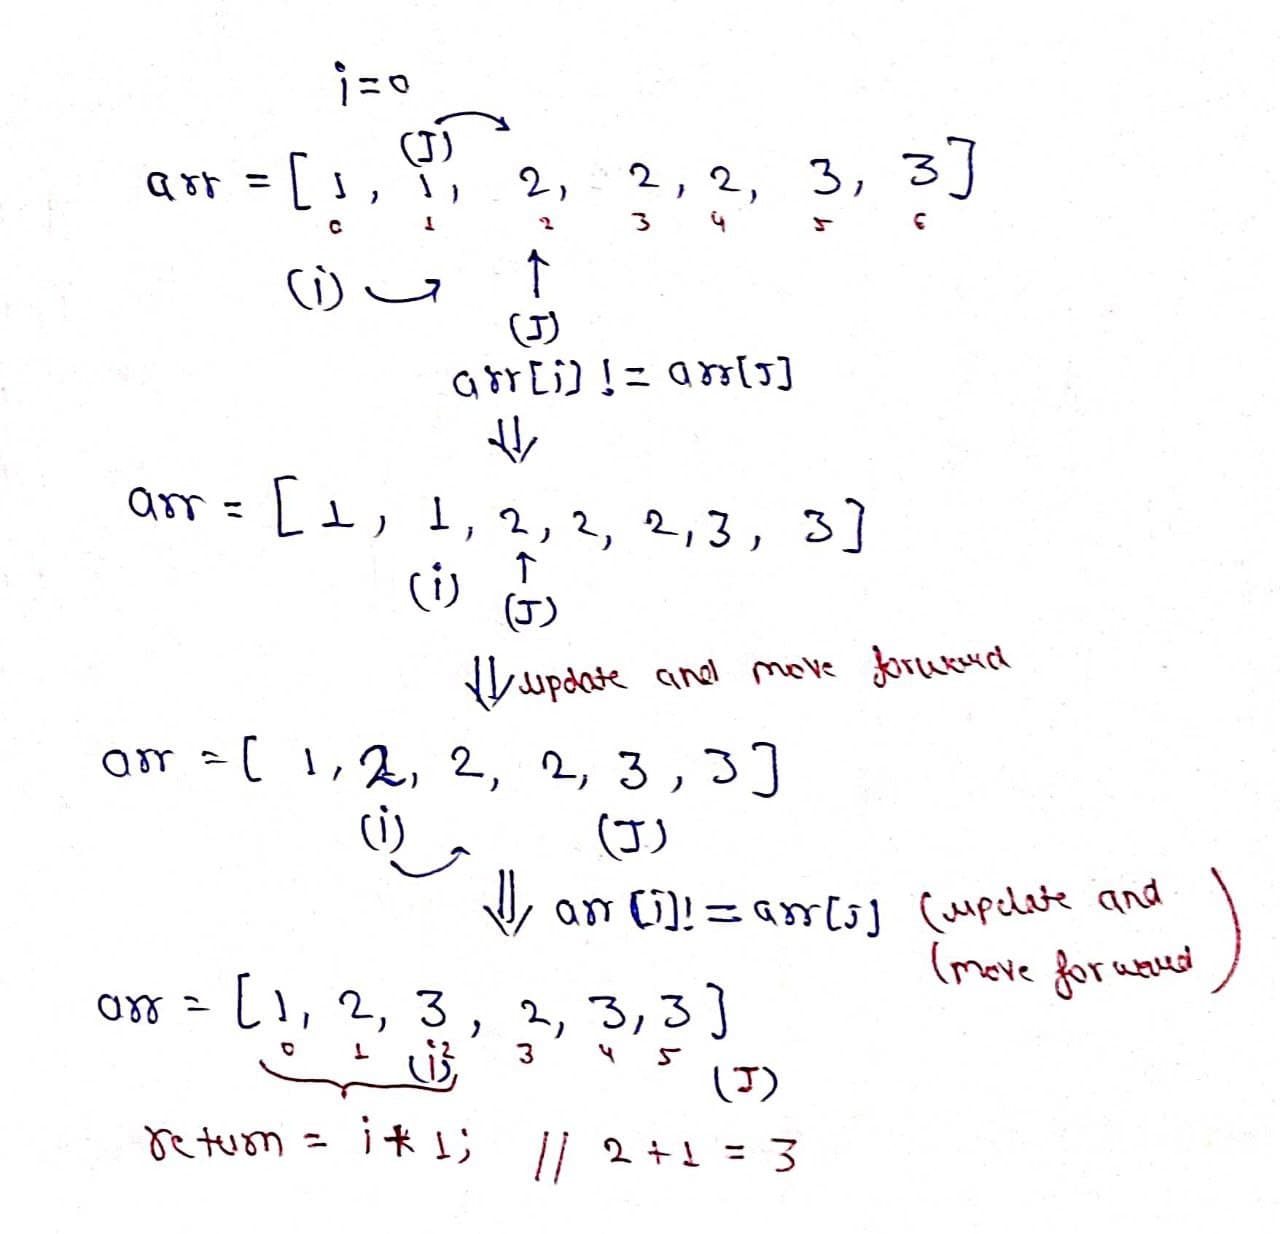 i=0
(J)
arr = [ 1, 1, 2, 2, 2, 3, 3]
0 1 2 3 4 5 6
(i)
(J)
arr[i] != arr[J]
arr = [ 1, 1, 2, 2, 2, 3, 3]
(i) (J)
update and move forward
arr = [ 1, 2, 2, 2, 3, 3]
(i) (J)
arr [i] != arr[J] (update and
(move forward)
arr = [1, 2, 3, 2, 3, 3]
0 1 2 3 4 5
(i) (J)
return = i * 1; // 2 + 1 = 3